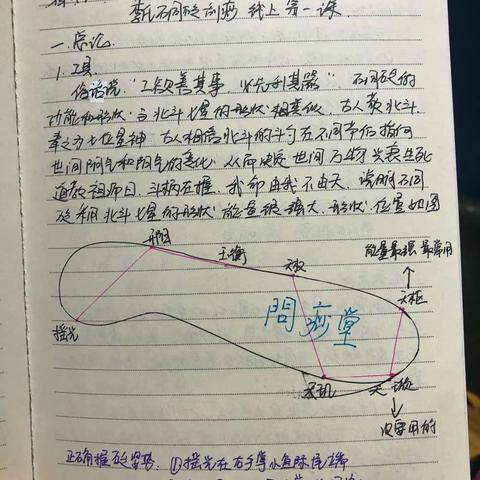 李氏石同砭刮痧 线上第一课
一.总论
1.工具
俗话说:"工欲善其事,必先利其器" 石同砭的
功能和形状,与北斗七星的形状相类似,古人敬北斗,
奉之为七位星神,古人相信北斗的斗勺在不同季节指向
世间阴气和阳气的变化,从而决定世间万物兴衰生死
道教祖师曰,斗柄在握,我命由我不由天,说明石同
砭利用北斗七星的形状,能量很强大,形状,位置如图
开阳
玉衡
天权
能量最强 最常用
天枢
摇光
問痧堂
天机
天璇
次要用的
正确握砭姿势:①摇光在右手薄小鱼际